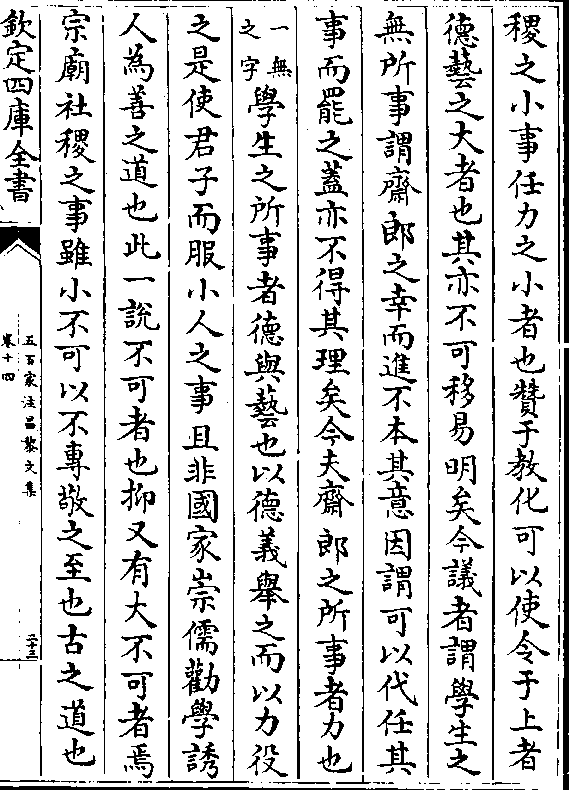 稷之小事任力之小者也贊于教化可以使令于上者
德藝之大者也其亦不可移易明矣今議者謂學生之
無所事謂齋郎之幸而進不本其意因謂可以代任其
事而罷之蓋亦不得其理矣今夫齋郎之所事者力也
一無之字學生之所事者德與藝也以德義舉之而以力役
之是使君子而服小人之事且非國家崇儒勸學誘
人為善之道也此一說不可者也抑又有大不可者焉
宗廟社稷之事雖小不可以不專敬之至也古之道也
欽定四庫全書
五百家注昌黎文集
卷十四
二十三